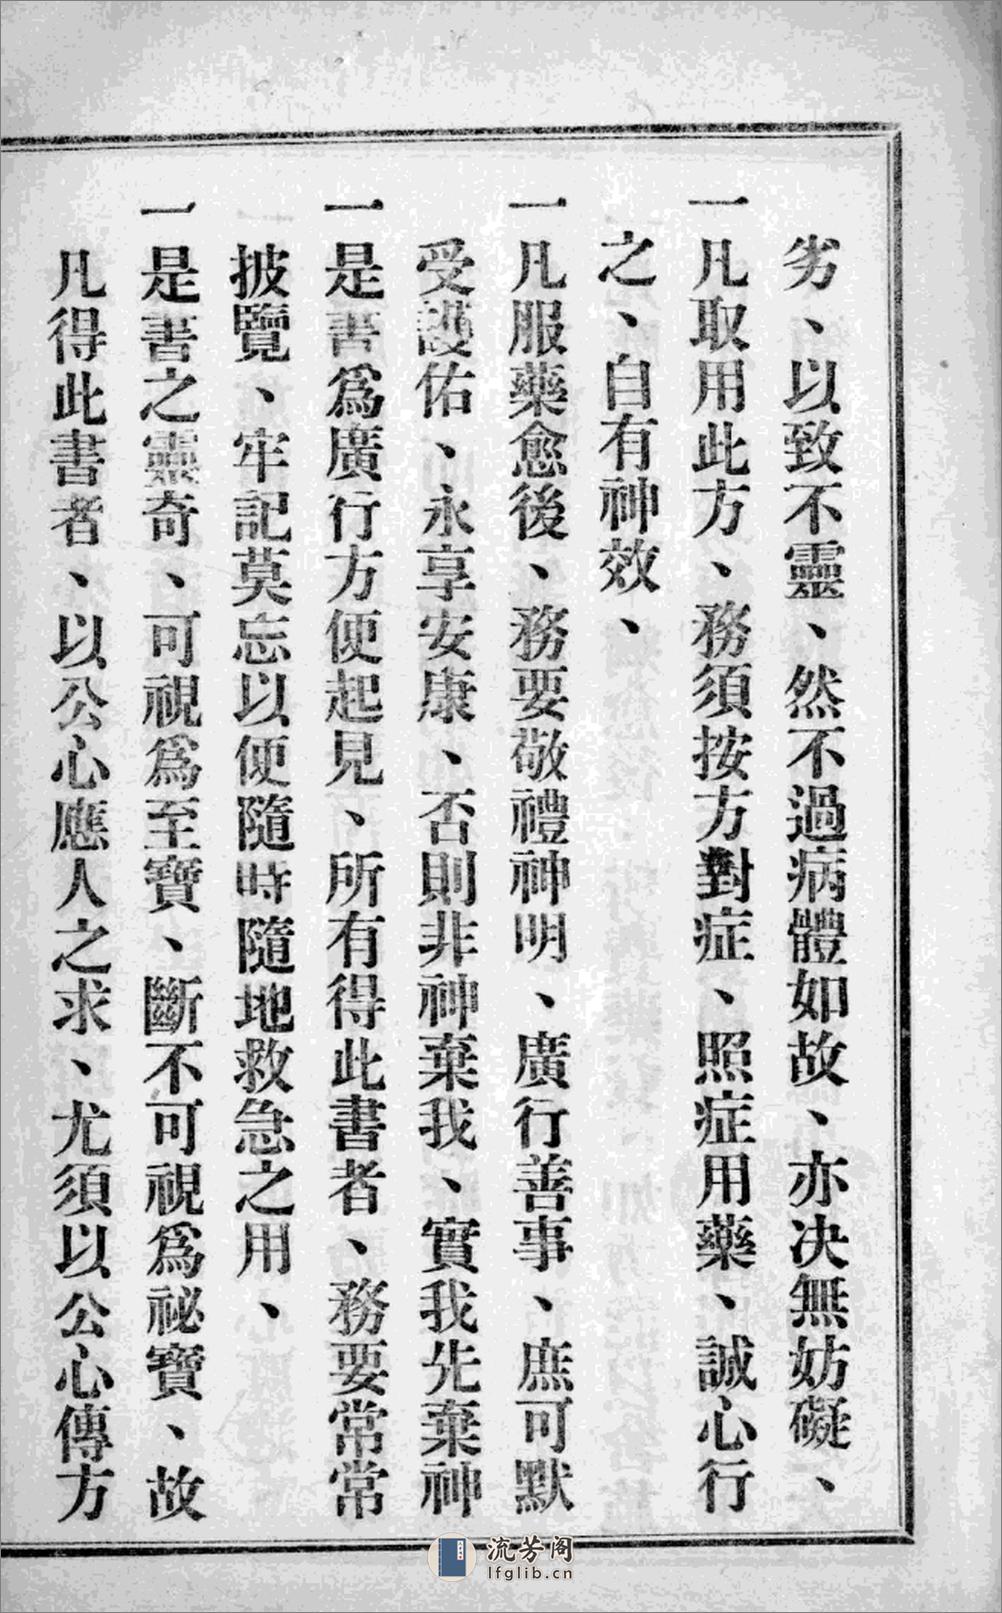 劣、以致不靈、然不過病體如故、亦決無妨礙、
一凡取用此方、務須按方對症、照症用藥、誠心行
之、自有神效、
一凡服藥愈後、務要敬禮神明、廣行善事、庶可默
受護佑、永享安康、否則非神棄我、實我先棄神
一是書爲廣行方便起見、所有得此書者、務要常常
披覽、牢記莫忘以便隨時隨地救急之用、
一是書之靈奇、可視爲至寶、斷不可視爲祕寶、故
凡得此書者、以公心應人之求、尤須以公心傳方
流芳阁
lfglib.cn